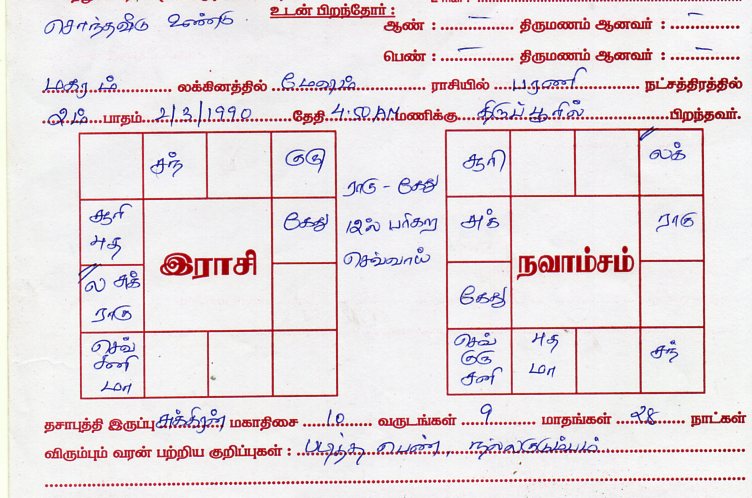 உடன் பிறந்தோர் :
சொந்தவீடு உண்டு.
ஆண் : — திருமணம் ஆனவர் : —
பெண் : — திருமணம் ஆனவர் : —
மகரம் லக்கினத்தில் மேஷம் ராசியில் பரணி நட்சத்திரத்தில்
2ம் பாதம் 2/3/1990 தேதி 4:50 AM மணிக்கு திருப்பூரில் பிறந்தவர்.
சந் குரு
சூரி புத கேது
ல சுக் ராகு
செவ் சனி மா
இராசி
ராகு - கேது
12ல் பரிகார
செவ்வாய்
சூரி லக்
சுக் ராகு
கேது
செவ் குரு சனி புத மா சந்
நவாம்சம்
தசாபுத்தி இருப்பு சுக்கிரன் மகாதிசை 10 வருடங்கள் 9 மாதங்கள் 28 நாட்கள்
விரும்பும் வரன் பற்றிய குறிப்புகள் : படித்த பெண், நல்லகுடும்பம்